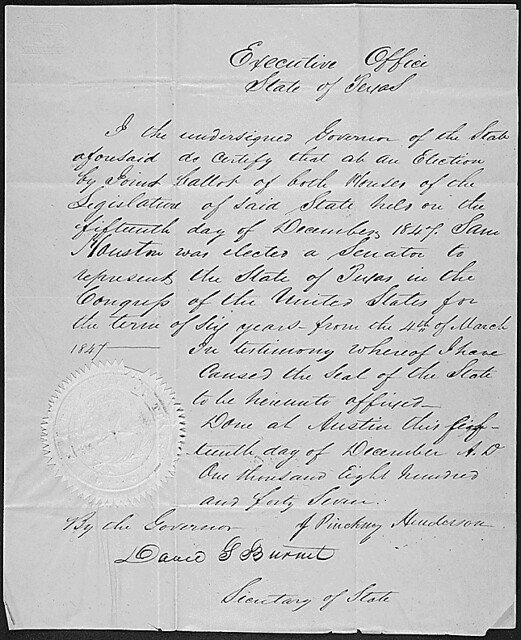 Executive Office
State of Texas
I the undersigned Governor of the State
aforesaid do certify that at an Election
by Joint ballot of both Houses of the
Legislature of said State held on the
fifteenth day of December, 1847. Sam
Houston was elected a Senator to
represent the State of Texas in the
Congress of the United States for
the term of six years - from the 4th of March
1847
In testimony whereof I have
caused the seal of the State
to be hereunto affixed
Done at Austin this fif-
teenth day of December A.D
One thousand Eight hundred
and forty Seven.
By the Governor
J Pinckney Henderson
David G Burnet
Secretary of State